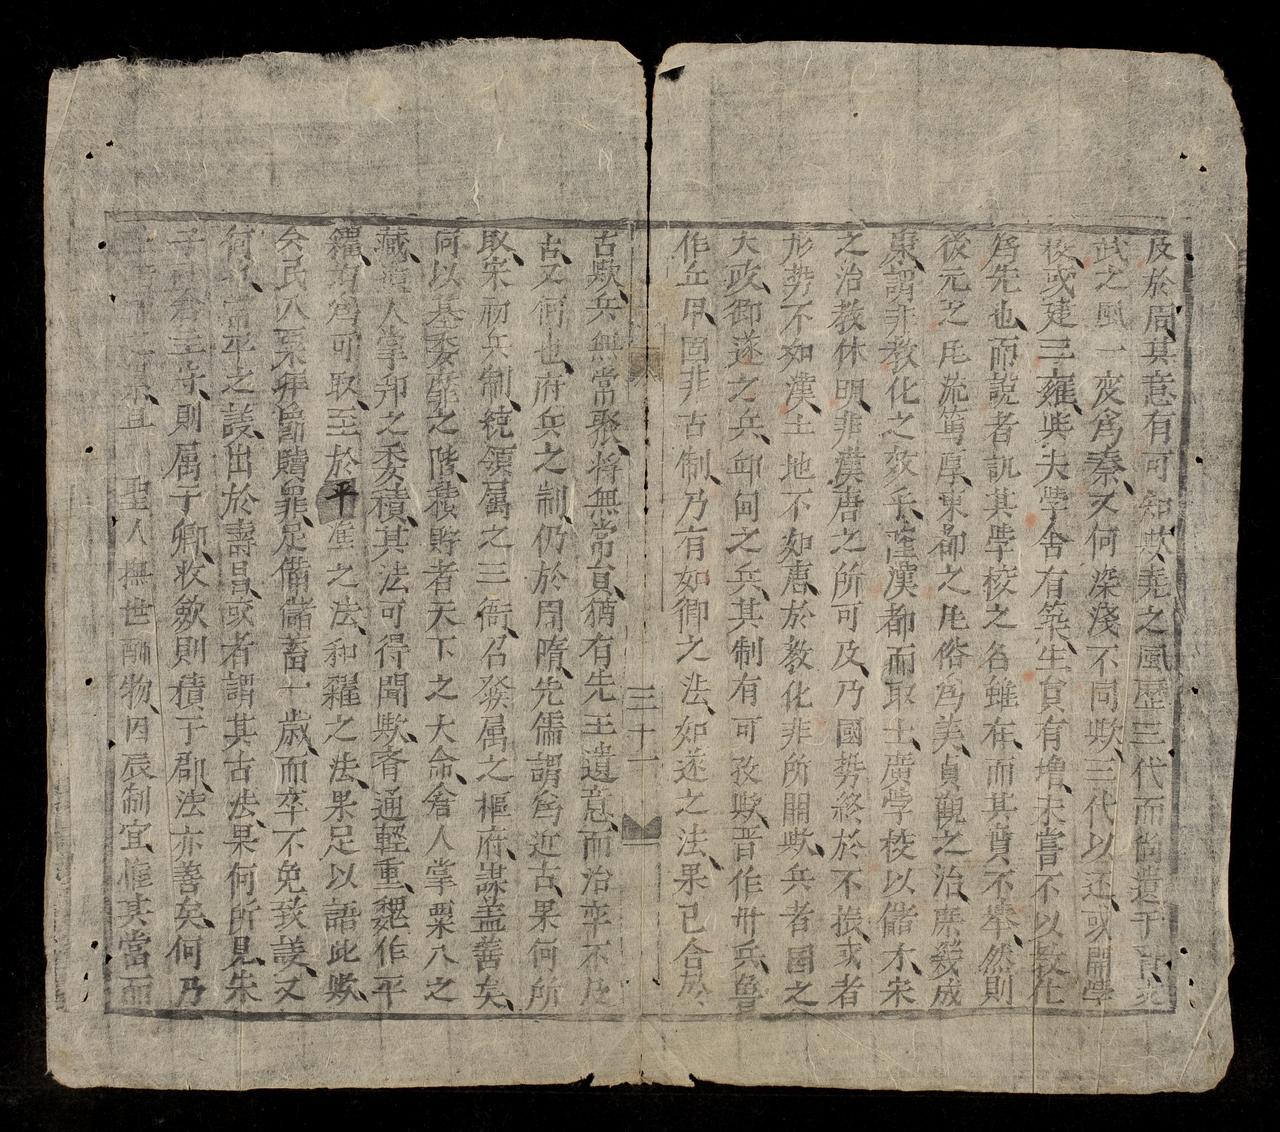 及於周其意有可知歟堯之風歴三代而尚遺于晉堯
武之風一变爲秦又何深淺不同歟三代以还或開學
校或建三雍與夫學舍有築生貟有增未嘗不以教化
爲先也而說者訊其學校之名雖在而其實不舉然則
後元之民流篤厚東都之民俗爲美貞觀之治庶幾成
康謂非教化之效乎座漢都而取士廣學校以儲才宋
之治教休明非漢唐之所可及乃國势終於不振或者
形势不如漢土地不如唐於教化非所関歟兵者國之
大政御遂之兵邱甸之兵其制有可攷歟晋作卅兵魯
作丘甲固非古制乃有如卿之法如遂之法果已合於
三十一
古歟兵無常聚将無常貟猶有先王遺意而治卒不及
古又何也府兵之制仍於周隋先儒謂爲近古果何所
取宋初兵制統領属之三衙召發属之樞府謀盖善矣
何以基委靡之階積貯者天下之大命倉人掌粟入之
藏遺人掌邦之委積其法可得聞歟斉通輕重魏作平
糴均爲可取至於平准之法和糴之法果足以語此歟
矣民入粟拜爵贖罪足備儲畜一歳而卒不免致議又
何也常平之議出於壽昌或者謂其古法果何所見朱
子社倉主守則属于卿收斂則積于郡法亦善矣何乃
聖人撫世酬物因辰制宜惟其當而